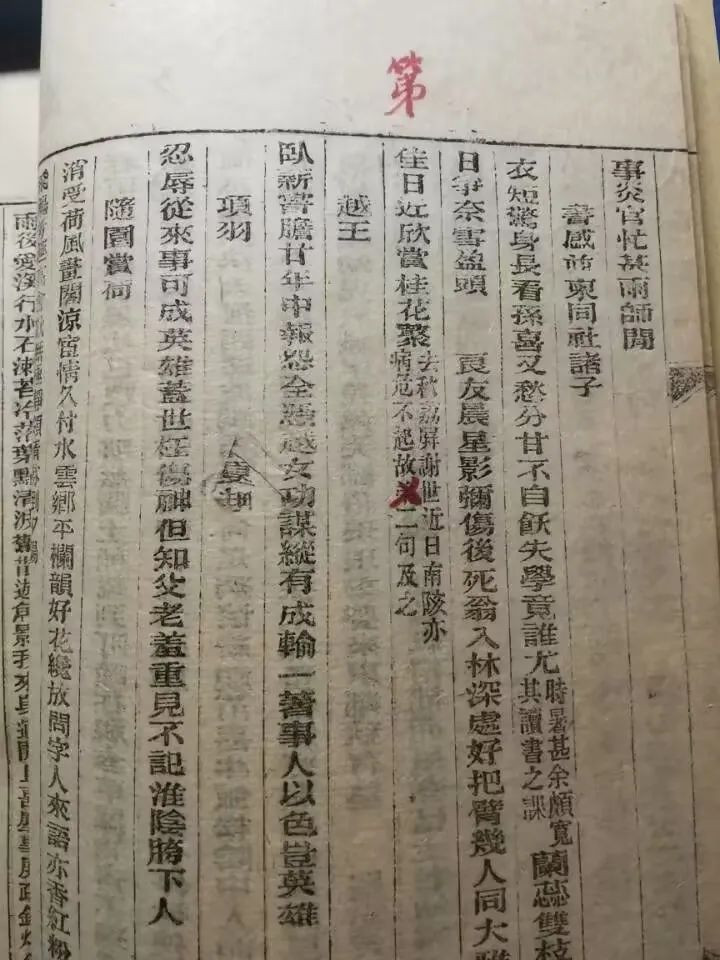 第
事炎官忙甚雨師閒
書感並柬同社諸子
衣短驚身長看孫喜又愁分甘不自飫失學竟誰尤時暑甚余頗寬其讀書之課蘭蕊雙枝
日爭奈雪盈頭 良友晨星影彌傷後死翁入林深處好把臂幾人同大
佳日近欣賞桂花聚去秋荔屏謝世近日南陔亦病危不起故 二句及之
越王
臥薪嘗膽廿年中報怨全憑越女功謀縱有成輸一著事人以色豈英雄
項羽
忍辱從來事可成英雄蓋世枉傷神但知父老羞重見不記淮陰胯下人
隨園賞荷
消受荷風畫閣涼宦情久付水雲鄉平欄韻好花纔放問字人來語亦香紅粉
雨後 行水石 苔冷落葉點清波舊